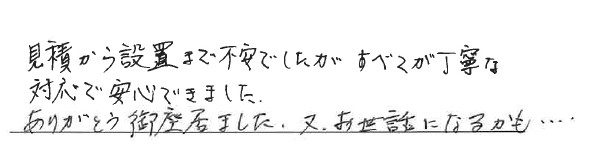 見積から設置まで不安でしたが すべてが丁寧な
対応で安心できました.
ありがとう御座居ました. 又.お世話になるかも····